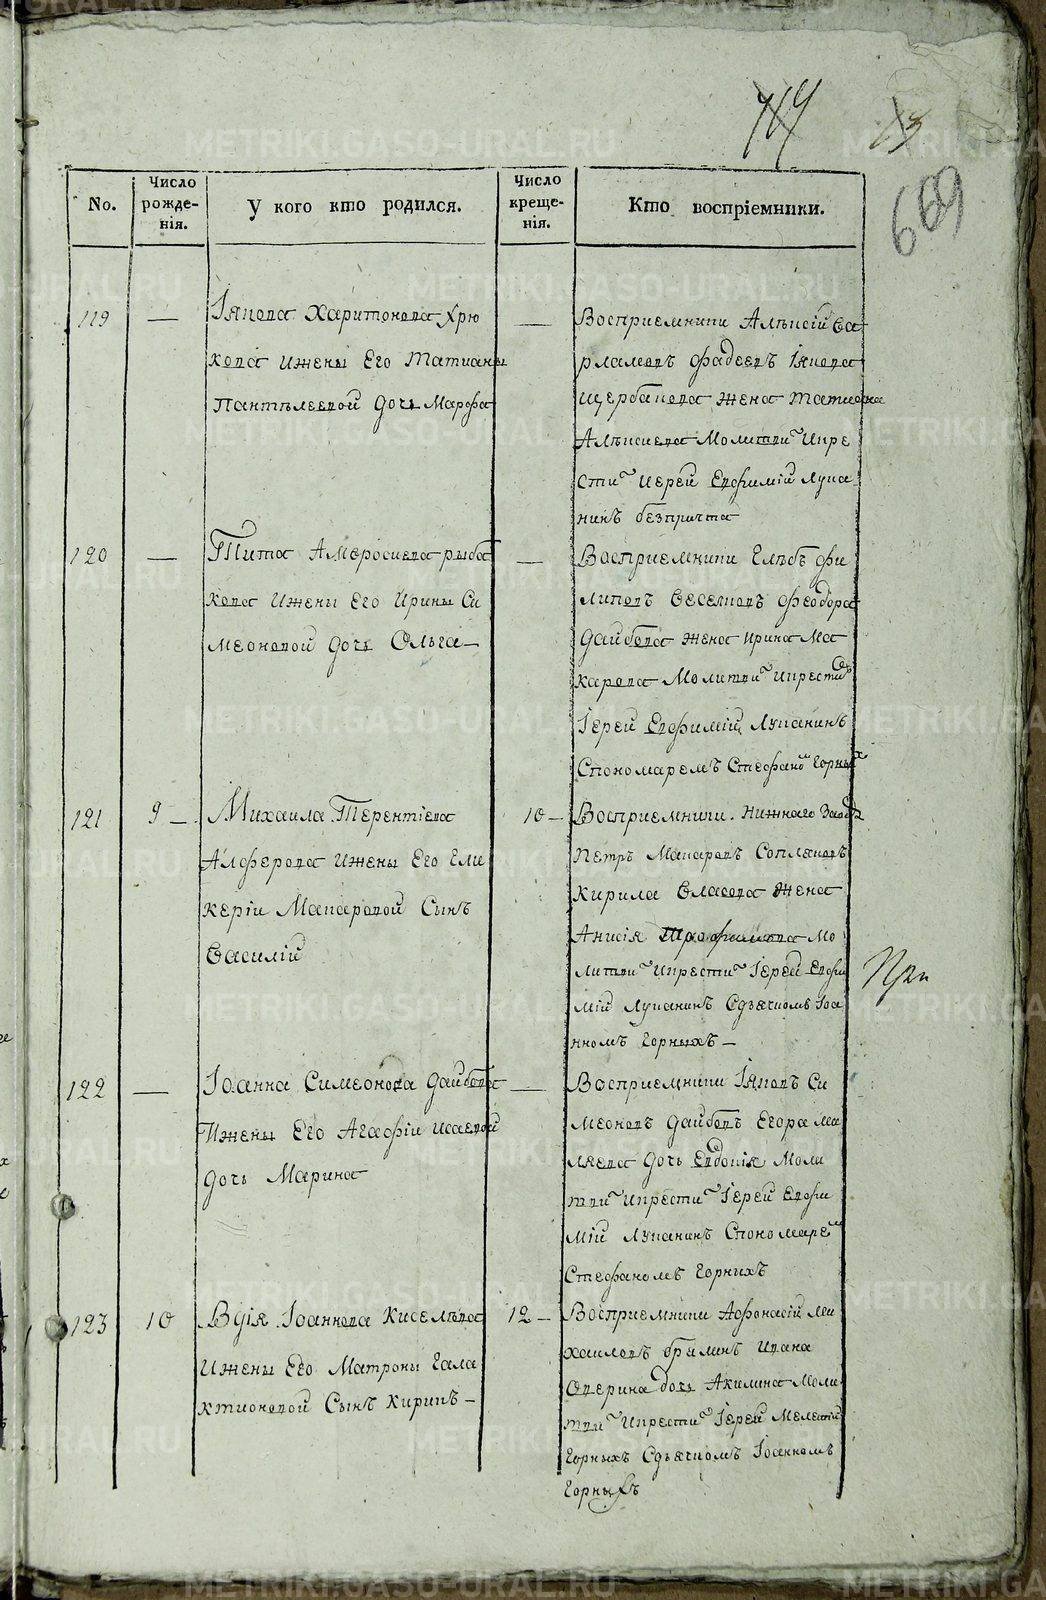 714
13
669
No.
Число рожде- нія.
У кого кто родился.
Число креще- нія.
Кто воспріемники.
119 —
Іякова Харитонова Хрю
кова ижены Его Татианы
Пантѣлеевой дочь Марфа
—
Восприемники Алѣксій Ва
рламовъ Фадеевъ Іякова
Щербакова жена Татиана
Алѣксиева Молитви Икре
сти Иерей Евфимій Лука
нинъ безпричта
120 —
Тита Амвросиева рыба
кова Ижены Его Ирины Си
меоновой дочь Ольга —
—
Восприемники Глѣбъ Фи
липовъ Веселковъ Феодора
Дайбова жена Ирина Ма
карова Молитви Икрести
Іерей Евфимій Луканинъ
Спономаремъ Стефаном Горных
121 9 —
Михаила Терентіева
Алферова ижены Его Гли
керіи Макаровой Сынъ
Василій
10 —
Восприемники. Нижнаго Завода
Петръ Макаровъ
Кирила Власова жена
Анисія Трофимова Мо
литви Икрести Іерей Евфи
мій Луканинъ Сдьячкомъ Іоа
нномъ Горныхъ —
122 —
Іоанна Симеонова Дайбова
Ижены Его Агафіи Исаевой
дочь Марина
—
Восприемники Іяковъ Си
меоновъ Дайбовъ Егора Ма
ляева дочь Евдокія Моли
тви Икрести Іерей Евфи
мій Луканинъ Спономаре
Стефаномъ Горнихъ
123 10
Іоаннова Киселѣва
Ижены Его Матроны Гала
ктионовой Сынъ Кирикъ —
12 —
Восприемники Афонасій Ми
хаиловъ Ивана
дочь Акилина Моли
тви Икрести Іерей Мелетій
Горныхъ Сдьячкомъ Іоанномъ
Горныхъ
METRIKI.GASO-URAL.RU